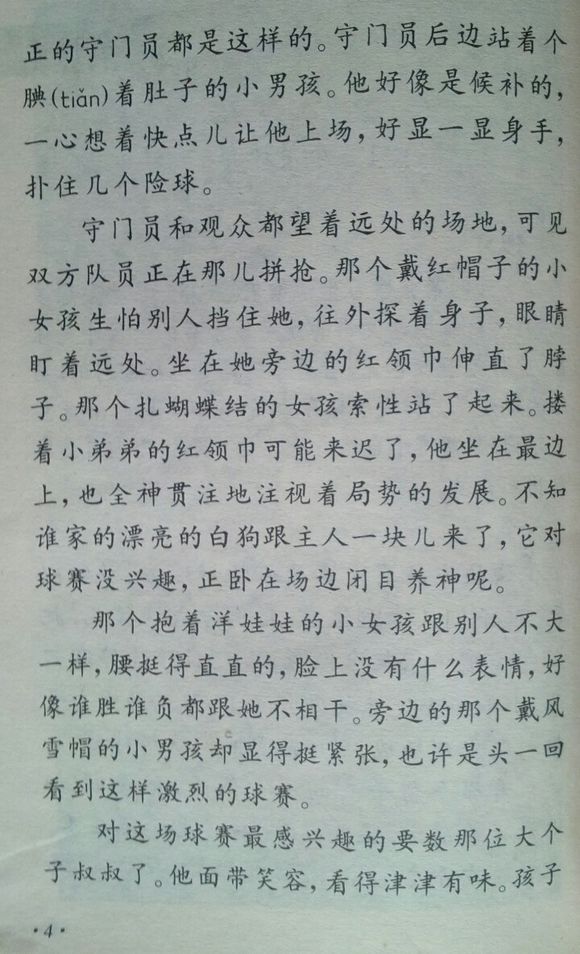 正的守门员都是这样的。守门员后边站着个
腆(tiǎn)着肚子的小男孩。他好像是候补的，
一心想着快点儿让他上场，好显一显身手，
扑住几个险球。
守门员和观众都望着远处的场地，可见
双方队员正在那儿拼抢。那个戴红帽子的小
女孩生怕别人挡住她，往外探着身子，眼睛
盯着远处。坐在她旁边的红领巾伸直了脖
子。那个扎蝴蝶结的女孩索性站了起来。搂
着小弟弟的红领巾可能来迟了，他坐在最边
上，也全神贯注地注视着局势的发展。不知
谁家的漂亮的白狗跟主人一块儿来了，它对
球赛没兴趣，正卧在场边闭目养神呢。
那个抱着洋娃娃的小女孩跟别人不大
一样，腰挺得直直的，脸上没有什么表情，好
像谁胜谁负都跟她不相干。旁边的那个戴风
雪帽的小男孩却显得挺紧张，也许是头一回
看到这样激烈的球赛。
对这场球赛最感兴趣的要数那位大个
子叔叔了。他面带笑容，看得津津有味。孩子
·4·